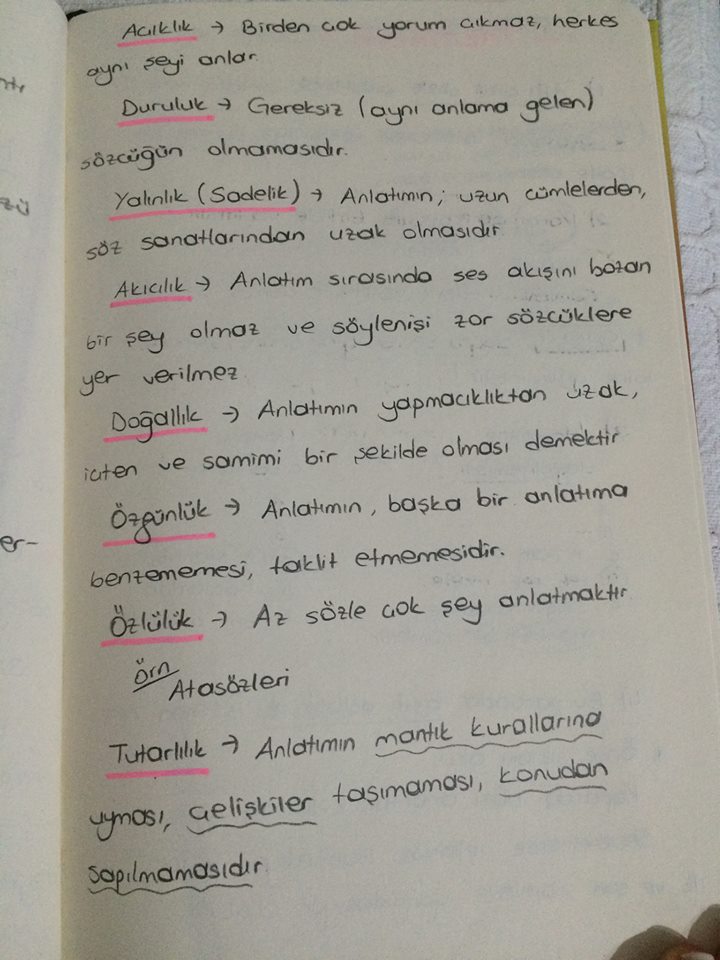 Açıklık → Birden çok yorum çıkmaz, herkes
aynı şeyi anlar.
Duruluk → Gereksiz (aynı anlama gelen)
sözcüğün olmamasıdır.
Yalınlık (Sadelik) → Anlatımın; uzun cümlelerden,
söz sanatlarından uzak olmasıdır
Akıcılık → Anlatım sırasında ses akışını bozan
bir şey olmaz ve söylenişi zor sözcüklere
yer verilmez
Doğallık → Anlatımın yapmacıklıktan uzak,
içten ve samimi bir şekilde olması demektir
Özgünlük → Anlatımın, başka bir anlatıma
benzememesi, taklit etmemesidir.
Özlülük → Az sözle çok şey anlatmaktır
Örn
Atasözleri
Tutarlılık → Anlatımın mantık kurallarına
uyması, çelişkiler taşımaması, konudan
sapılmamasıdır.